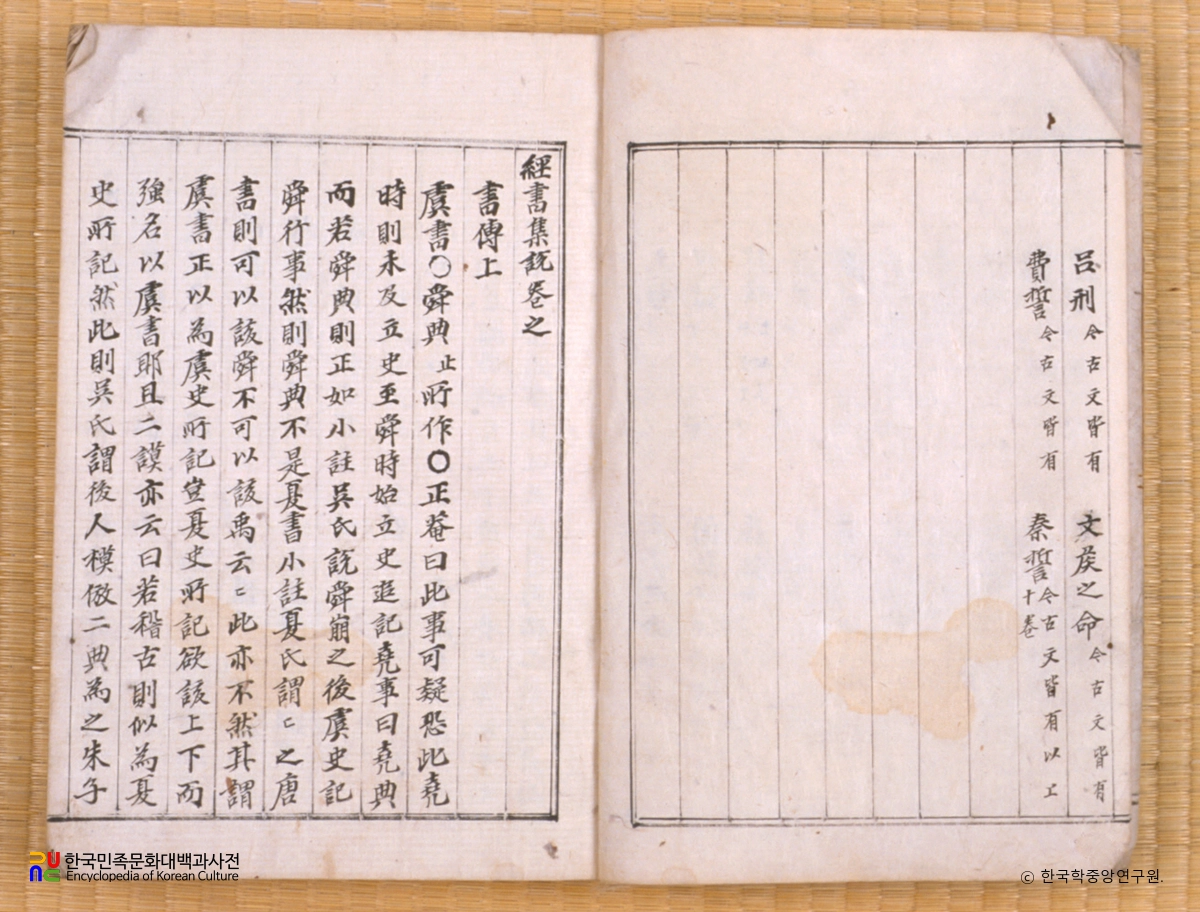 呂刑 今古文皆有 文侯之命 今古文皆有
費誓 今古文皆有 秦誓 今古文皆有以上十卷
經書集說卷之
書傳上
虞書〇舜典 止 所作〇正菴曰此事可疑恐此堯
時則未及立史至舜時始立史追記堯事曰堯典
而若舜典則正如小註吳氏說舜崩之後虞史記
舜行事然則舜典不是夏書小註夏氏謂〻之唐
書則可以該舜不可以該禹云〻此亦不然其謂
虞書正以為虞史所記豈夏史所記欲該上下而
強名以虞書耶且二謨亦云曰若稽古則似為夏
史所記然此則吳氏謂後人模倣二典為之朱子
한국민족문화대백과사전
Encyclopedia of Korean Culture
ⓒ 한국학중앙연구원.